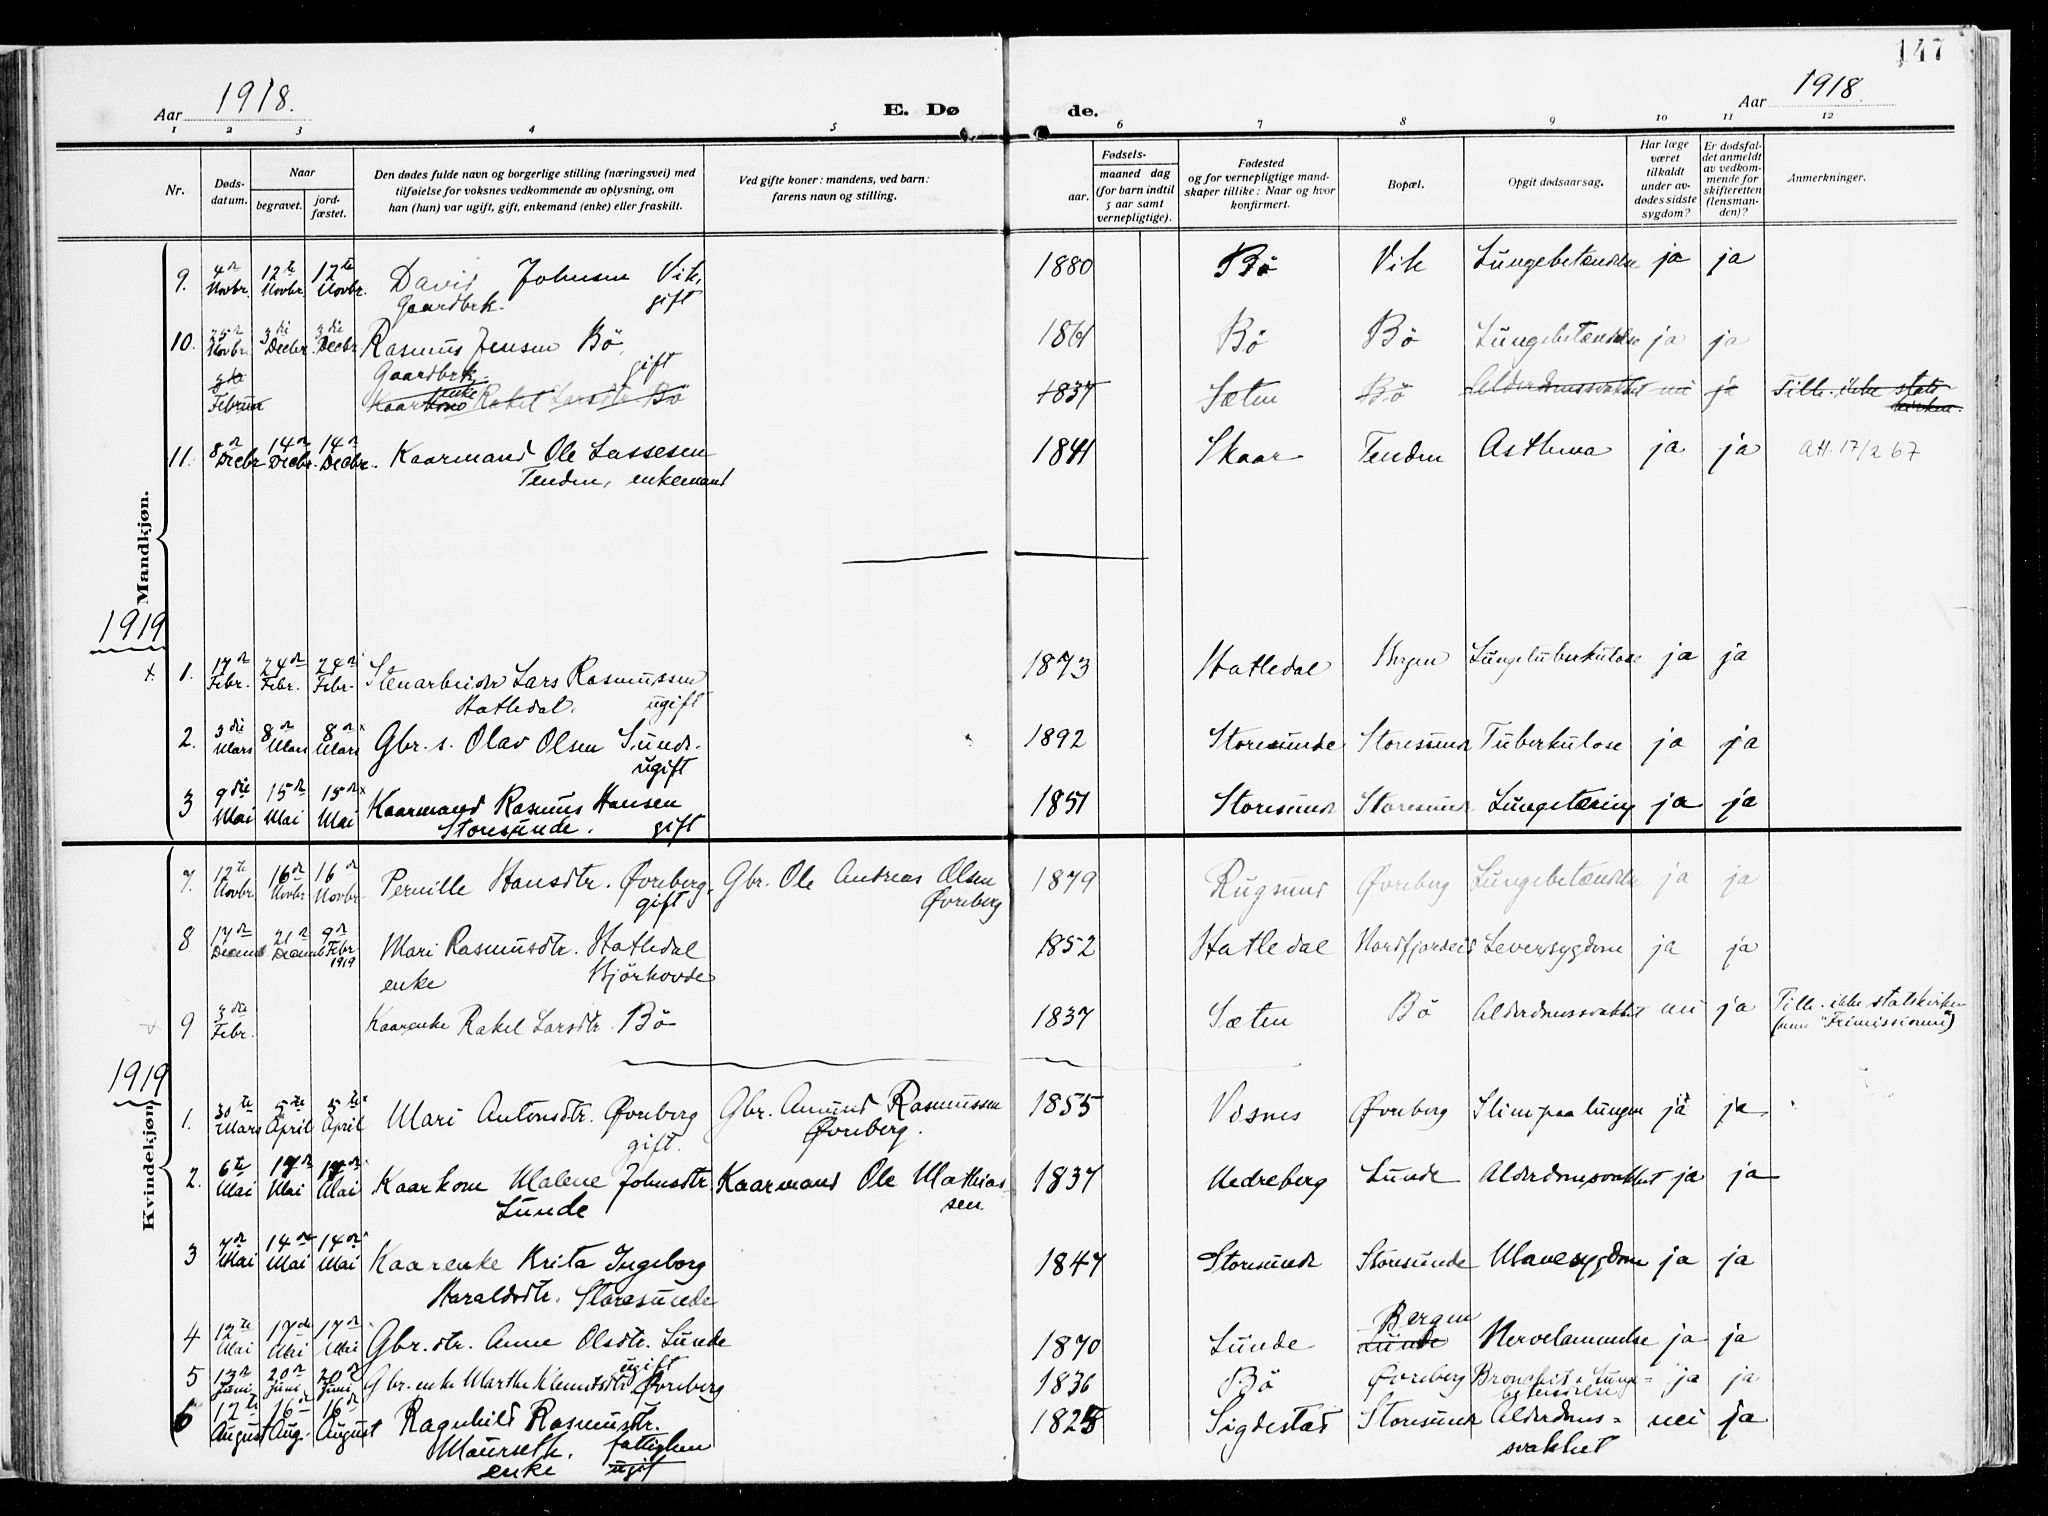 147
Aar 1918.
E. Døde.
Aar 1918.
1 2 3 4 5 6 7 8 9 10 11 12
Nr.
Døds-datum.
Naar
begravet.
jord-fæstet.
Den dødes fulde navn og borgerlige stilling (næringsvei) med tilføielse for voksnes vedkommende av oplysning, om han (hun) var ugift, gift, enkemand (enke) eller fraskilt.
Ved gifte koner: mandens, ved barn: farens navn og stilling.
Fødsels-
aar.
maaned dag (for barn indtil 5 aar samt vernepligtige).
Fødested og for vernepligtige mandskaper tillike: Naar og hvor konfirmert.
Bopæl.
Opgit dødsaarsag.
Har læge været tilkaldt under avdødes sidste sygdom?
Er dødsfaldet anmeldt av vedkommende for skifteretten (lensmanden)?
Anmerkninger.
Mandkjøn.
9. 4de Novbr. 12te Novbr. 12te Novbr. David Johnsen Vik, Gaardbrk. gift 1880 Bö Vik Lungebetændelse ja ja
10. 25de Novbr. 3die Decbr. 3die Decbr. Rasmus Jensen Bö, Gaardbrk. gift 1861 Bö Bö Lungebetændelse ja ja
3die Februar Kaarkone enke Rakel Larsdtr. Bö 1837 Sæten Bö Alderdomssvakhet nei ja Tilh. ikke statskirken.
11. 8de Decbr. 14de Decbr. 14de Decbr. Kaarmand Ole Lassesen Tenden, enkemand 1841 Skaar Tenden Asthma ja ja Att. 17/2 67
1919
1. 17de Febr. 24de Febr. 24de Febr. Stenarbeider Lars Rasmussen Hatledal. ugift 1873 Hatledal Bergen Lungetuberkulose ja ja
2. 3die Mars 8de Mars 8de Mars Gbr. s. Olav Olsen Sunde. ugift 1892 Storesunde Storesunde Tuberkulose ja ja
3 9die Mai 15de Mai 15de Mai Kaarmand Rasmus Hansen Storesunde. gift 1851 Storesunde Storesunde Lungetæring ja ja
Kvindekjøn.
7. 12te Novbr. 16de Novbr. 16de Novbr. Pernille Hansdtr. Øvreberg. gift Gbr. Ole Andreas Olsen Øvreberg 1879 Rugsund Øvreberg Lungebetændelse ja ja
8 17de Decemb. 21de Decemb. 9de Febr. 1919 Mari Rasmusdtr. Hatledal enke Björhovde 1852 Hatledal Nordfjordeid Leversygdom ja ja
9 3die Febr. Kaarenke Rakel Larsdtr. Bö 1837 Sæten Bö Alderdomssvakhet nei ja Tilh. ikke statskirken (men "Frimissionen")
1919
1. 30te Mars 5te April 5te April Mari Antonsdtr. Øvreberg gift. Gbr. Amund Rasmussen Øvreberg. 1855 Visnes Øvreberg Slim paa lungen ja ja
2. 6te Mai 17de Mai 17de Mai Kaarkone Malene Johnsdtr. Lunde Kaarmand Ole Mathiassen 1837 Nedreberg Lunde Alderdomssvakhet ja ja
3 7de Mai 14de Mai 14de Mai Kaarenke Krita Ingeborg Haraldsdtr. Storesunde 1847 Storesunde Storesunde Mavesygdom ja ja
4 12te Mai 17de Mai 17de Mai Gbr. dtr. Anne Olsdtr. Lunde ugift 1870 Lunde Bergen Lunde Nervelammelse ja ja
5 13de Juni 20de Juni 20de Juni Gbr. enke Marthe Klemetsdtr. Øvreberg 1836 Bö Øvreberg Bronchit & Lungebetændelse ja ja
6 12te August 16de Aug. 16de August Ragnhild Rasmusdtr. Maurseth. fattiglem enke ugift 1825 Sigdestad Storesunde Alderdomssvakhet nei ja